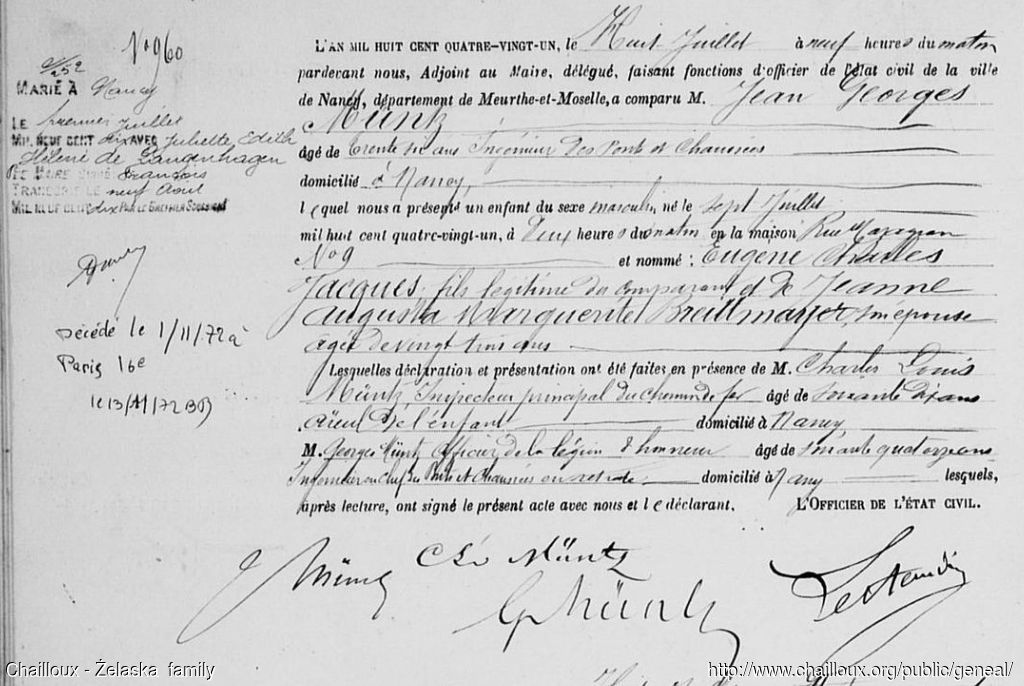 No 960
MARIÉ À Nancy
LE premier Juillet
MIL NEUF CENT dix AVEC Juliette Edith
Hélène de Landenhagen
LE MAIRE SIGNÉ François
TRANSCRIT LE neuf Août
MIL NEUF CENT dix PAR LE GREFFIER SOUSSIGNÉ
Décédé le 1/11/72 à
Paris 16e
le 13/11/72
L'AN MIL HUIT CENT QUATRE-VINGT-UN, le Huit Juillet à neuf heures du matin
pardevant nous, Adjoint au Maire, délégué, faisant fonctions d'officier de l'état civil de la ville
de Nancy, département de Meurthe-et-Moselle, a comparu M. Jean Georges
Müntz
âgé de trente six ans Ingénieur des Ponts et Chaussées
domicilié à Nancy,
lequel nous a présenté un enfant du sexe masculin, né le sept Juillet
mil huit cent quatre-vingt-un, à deux heures du matin en la maison Rue
No 9 et nommé : Eugène Charles
Jacques, fils légitime du comparant et de Jeanne
Augusta Marguerite Breittmayer, son épouse
âgée de vingt trois ans
Lesquelles déclaration et présentation ont été faites en présence de M. Charles Louis
Müntz, Inspecteur principal du chemin de fer âgé de soixante dix ans
aïeul de l'enfant domicilié à Nancy,
M. Georges Müntz officier de la légion d'honneur âgé de soixante quatorze ans
Ingénieur en chef des Ponts et Chaussées en retraite domicilié à Nancy lesquels,
après lecture, ont signé le présent acte avec nous et le déclarant. L'OFFICIER DE L'ÉTAT CIVIL.
J Müntz CLs Müntz
G Müntz
Chailloux - Żelaska family http://www.chailloux.org/public/geneal/